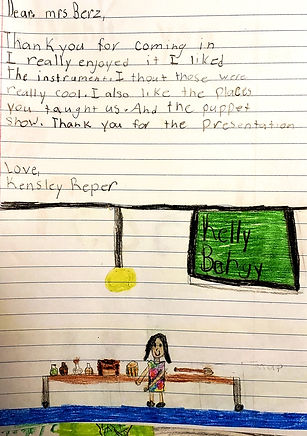 Dear, mrs Berz,
Thank you for coming in
I really enjoyed it I liked
The instrument. I thout those were
really cool. I also like the places
you taught us. And the puppet
show. Thank you for the presentation
Love,
Kensley Reper
Kelly